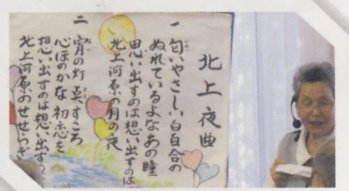 北上夜曲
一 匂いやさしい白百合の
ぬれているよなあの瞳
思い出すのは想い出すのは
北上河原の月の夜
二 宵の灯点すころ
心ほのかな初恋を
想い出すのは想い出すの
北上河原のせせらぎ